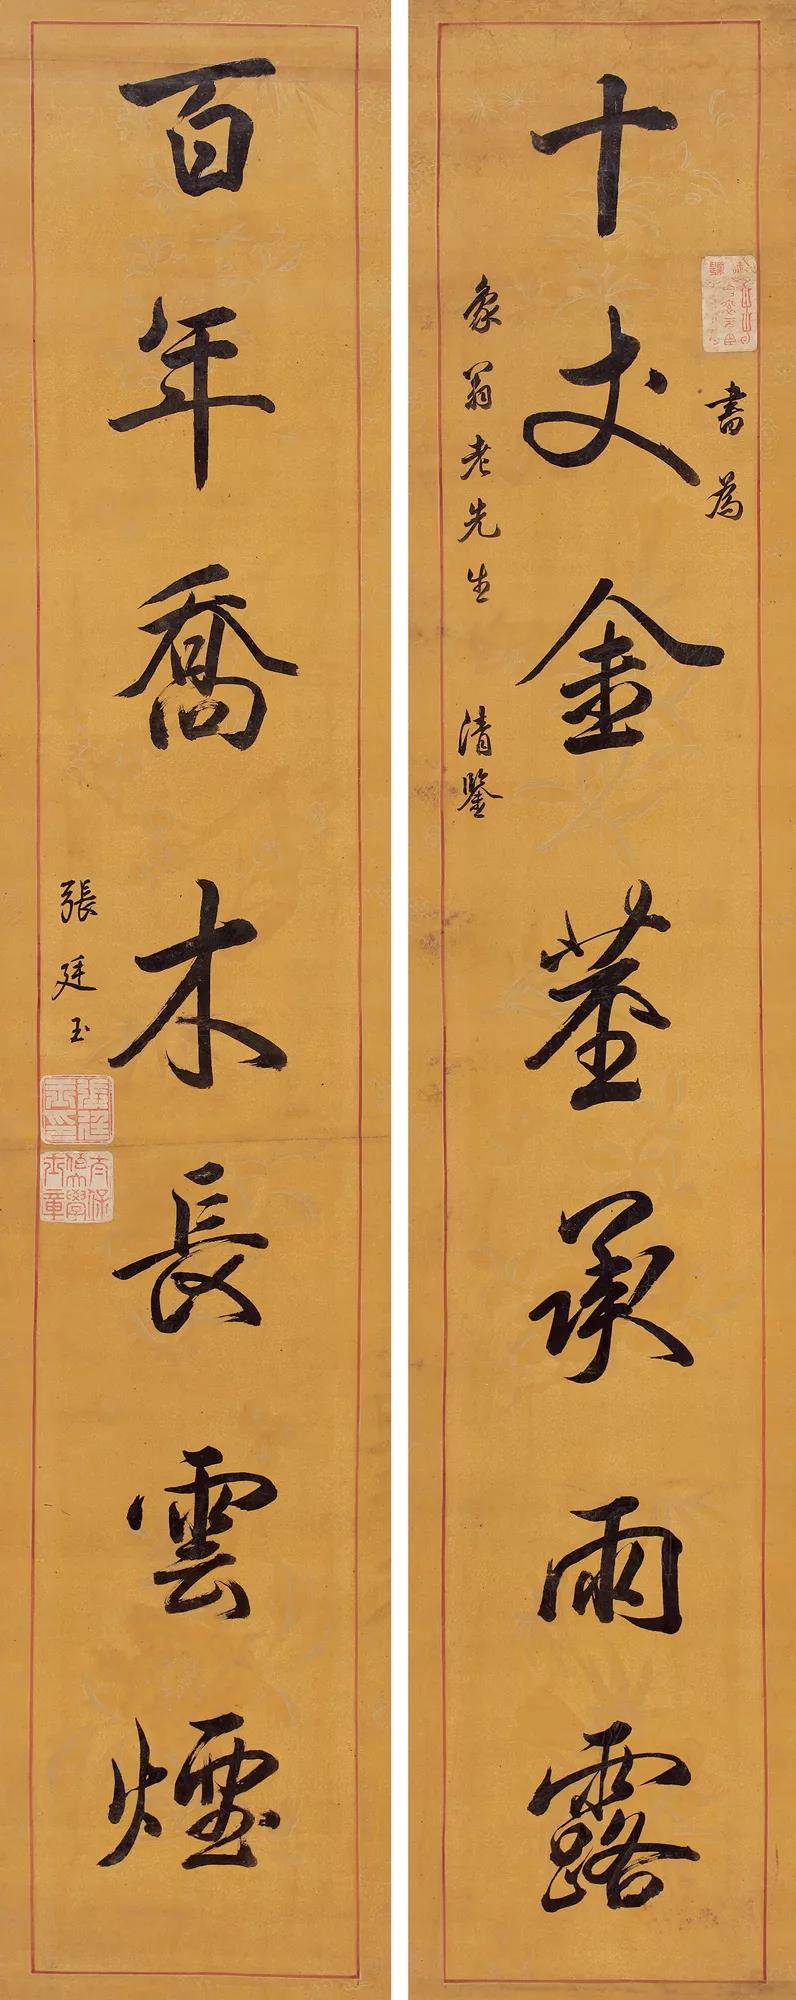 書為
十丈金莖承雨露
象翁老先生 清鑒
百年喬木長雲煙
張廷玉
張廷玉印